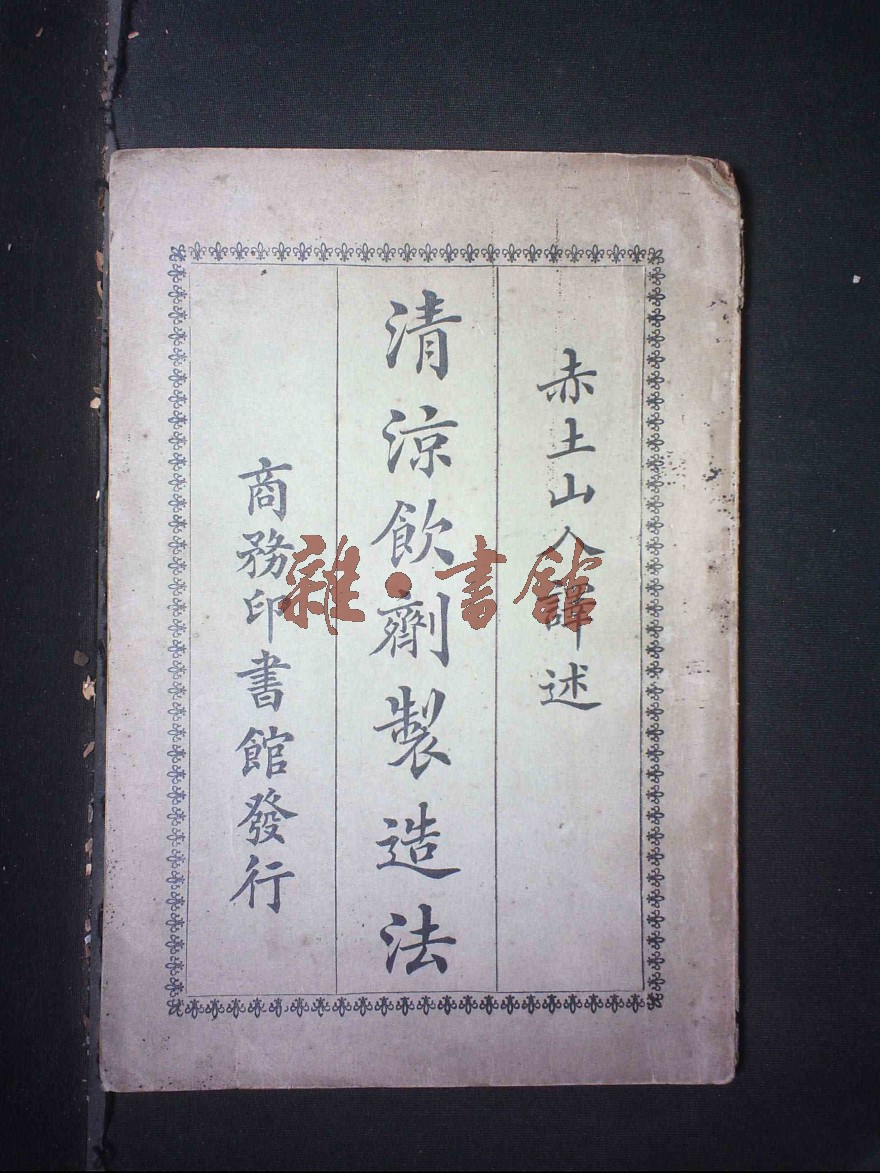 赤土山人譯述
清涼飲劑製造法
商務印書館發行
雜·書館